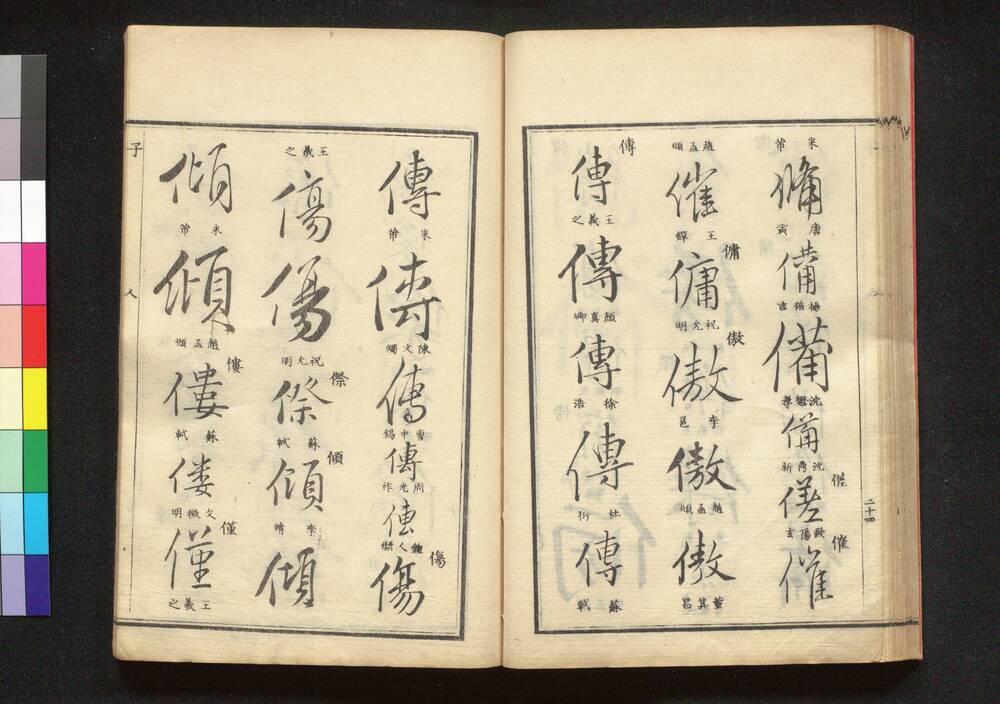 備
米芾
備
唐寅
備
楊循吉
備
沈懋孝
備
沈
新
傞
傞
歐陽玄
催
催
趙孟頫
催
王鐸
傭
傭
祝允明
傲
傲
李邕
傲
趙孟頫
傲
董其昌
傳
傳
王羲之
傳
顏真卿
傳
徐浩
傳
杜衍
傳
蘇軾
二十四
傳
米芾
傳
陳文燭
傳
曹申錫
傳
周光祚
傳
鍾人傑
傷
傷
王羲之
傷
傷
祝允明
傺
傺
蘇軾
傾
傾
李靖
傾
傾
米芾
傾
趙孟頫
僂
僂
蘇軾
僂
文徵明
僅
僅
王羲之
子
人